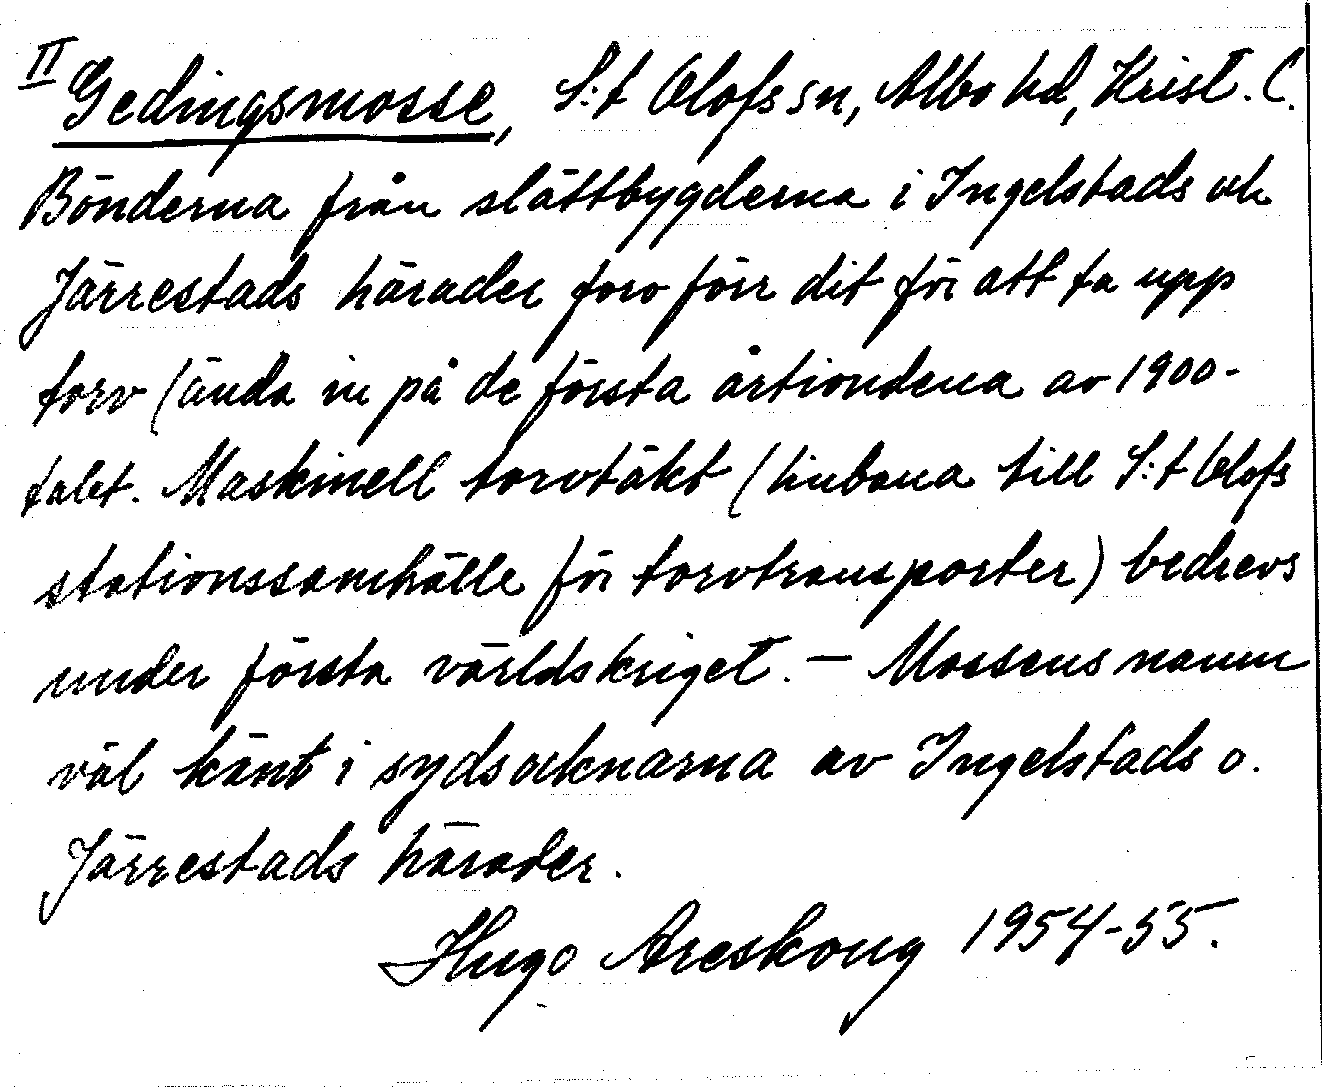 II
Gedingsmosse, S:t Olofs sn, Albo hd, Krist. L.
Bönderna från slättbygderna i Ingelstads och
Järrestads härader foro förr dit för att ta upp
torv (ända in på de första årtiondena av 1900-
talet. Maskinell torvtäkt (linbana till S:t Olofs
stationssamhälle för torvtransporter) bedrevs
under första världskriget. – Mossens namn
väl känt i sydsocknarna av Ingelstads o.
Järrestads härader.
Hugo Areskoug 1954-55.